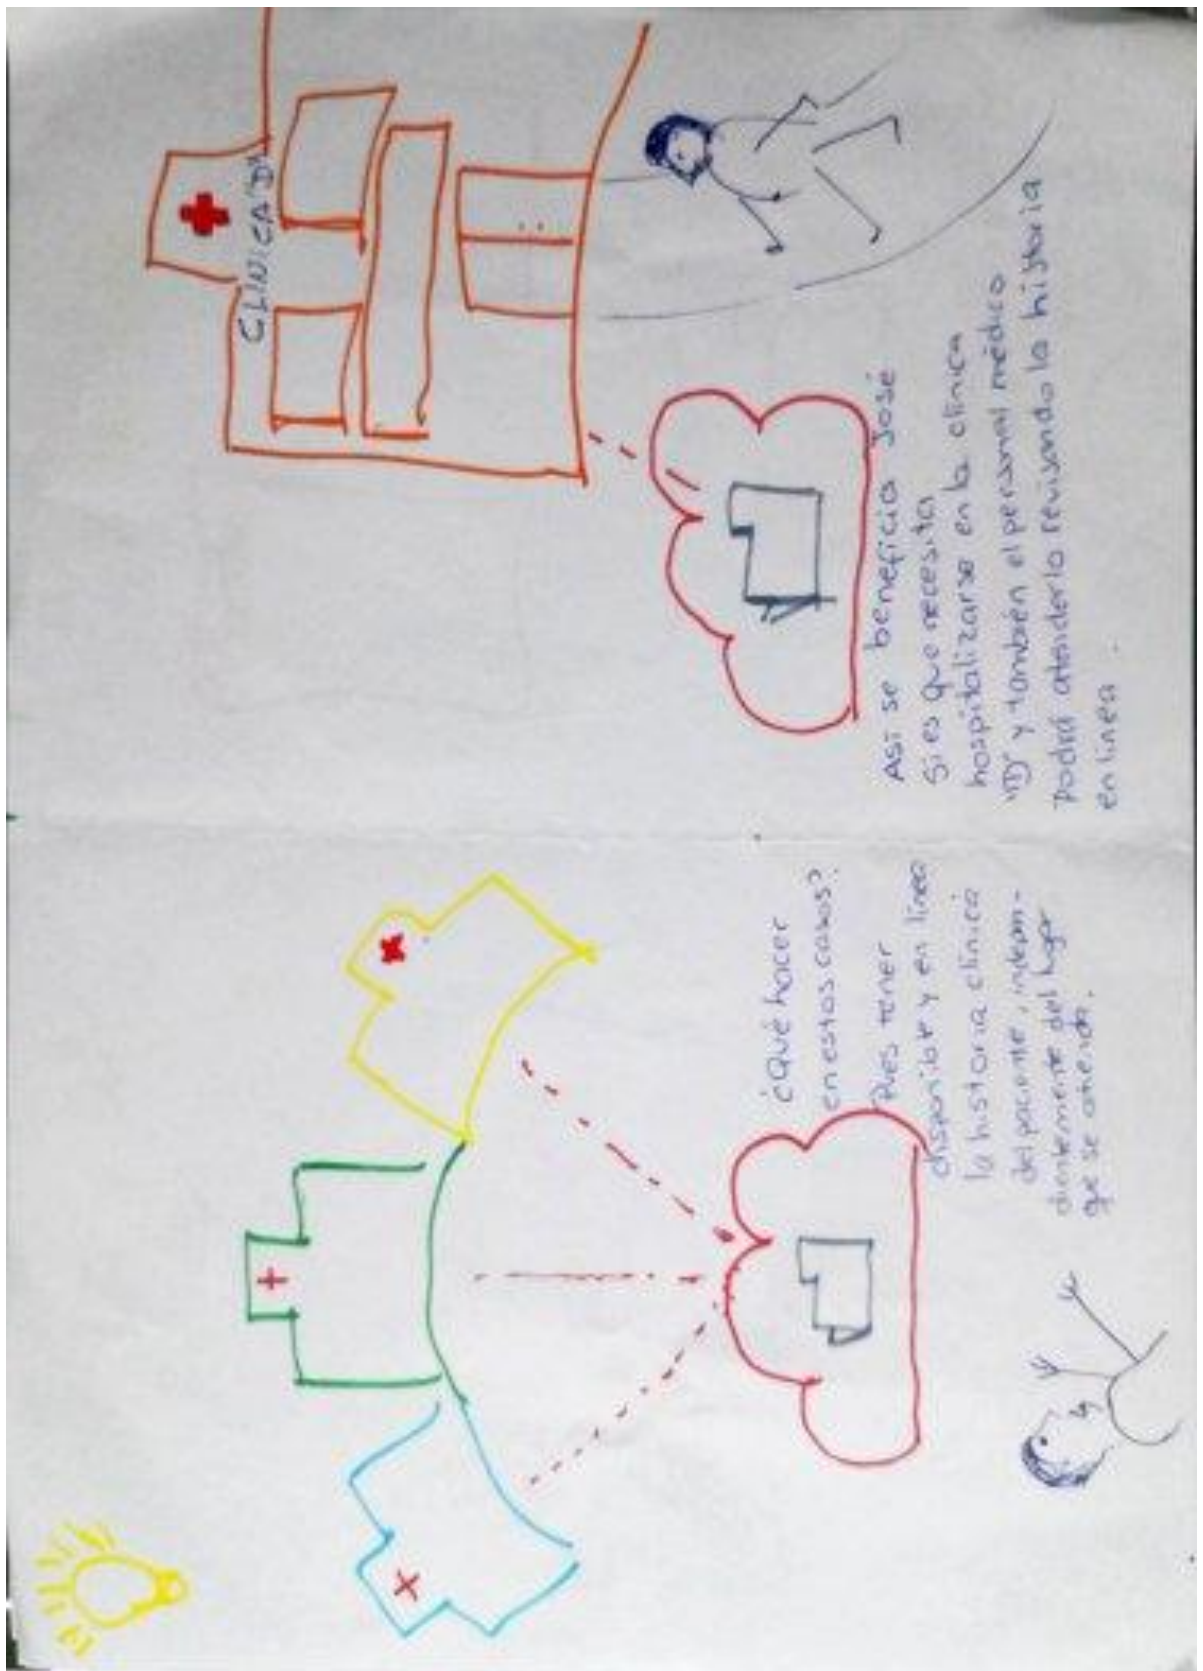 ¿Qué hacer
en estos casos?
Pues tener
disponible y en línea
la historia clínica
del paciente, indepen-
dientemente del lugar
que se atienda.
CLINICA "D"
Así se beneficia José
Si es que necesita
hospitalizarse en la clínica
"D" y también el personal médico
podrá atenderlo revisando la historia
en línea.